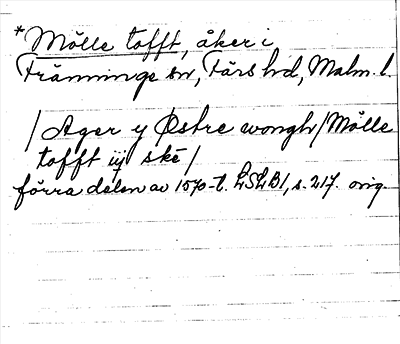 *Mölle tofft, åker i
Tränninge sn, Färs hd, Malm. l.
/Ager y Østre wongh/Mölle
tofft iij ske/
förra delen av 1570-t. LSLB1, s. 217. orig.